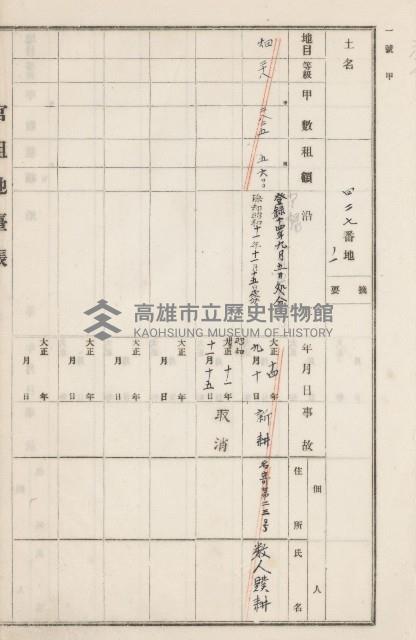 一號甲
土名
四二七番地
ノ一
摘要
地目
等級
甲數
租額
沿
年月日
事故
佃人
住所
氏名
畑
五六
登錄十四年九月五日処分
除却昭和十一年十一月十五日処分
大正十四年九月十日
新耕
名寄第二三号
数人蹼耕
昭和
大正十一年
十一月十五日
取消
大正 年 月 日
大正 年 月 日
大正 年 月 日
大正 年 月 日
官租地臺帳
高雄市立歷史博物館
KAOHSIUNG MUSEUM OF HISTORY